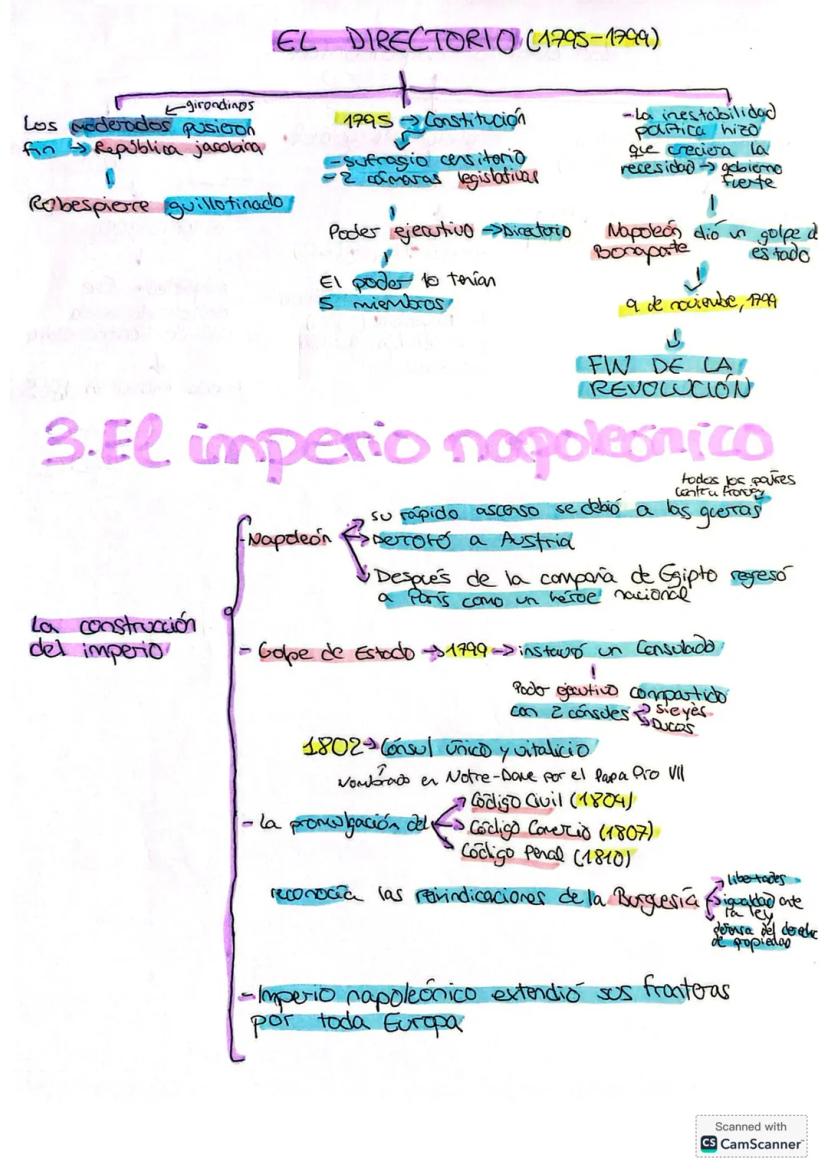 EL DIRECTORIO (1795-1799)
girondinos
Los moderados pusieron
fin → República jacobina
Robespierre guillotinado
1795 → Constitución
- sufragio censitorio
- 2 cámaras legislativas
Poder ejecutivo → Directorio
El poder lo tenían
5 miembros
- La inestabilidad
política hizo
que creciera la
necesidad → gobierno
fuerte
Napoleón dió un golpe d
Bonaparte estado
9 de noviembre, 1799
FIN DE LA
REVOLUCIÓN
3. El imperio napoleónico
todos los países
contra Francia
La construcción
del imperio
- Napoleón
su rápido ascenso se debió a las guerras
Derrotó a Austria
Después de la campaña de Egipto regresó
a París como un héroe nacional
- Golpe de Estado → 1799 → instauró un Consulado
Poder ejecutivo compartido
con 2 cónsules
Sieyès
Ducos
1802 → Cónsul único y vitalicio
Nombrado en Notre-Dame por el Papa Pío VII
- La promulgación del
Código Civil (1804)
Código Comercio (1807)
Código Penal (1810)
reconocía las reivindicaciones de la Burguesía
libertades
igualdad ante
la ley
defensa del derecho
de propiedad
- Imperio napoleónico extendió sus fronteras
por toda Europa
Scanned with
CS CamScanner